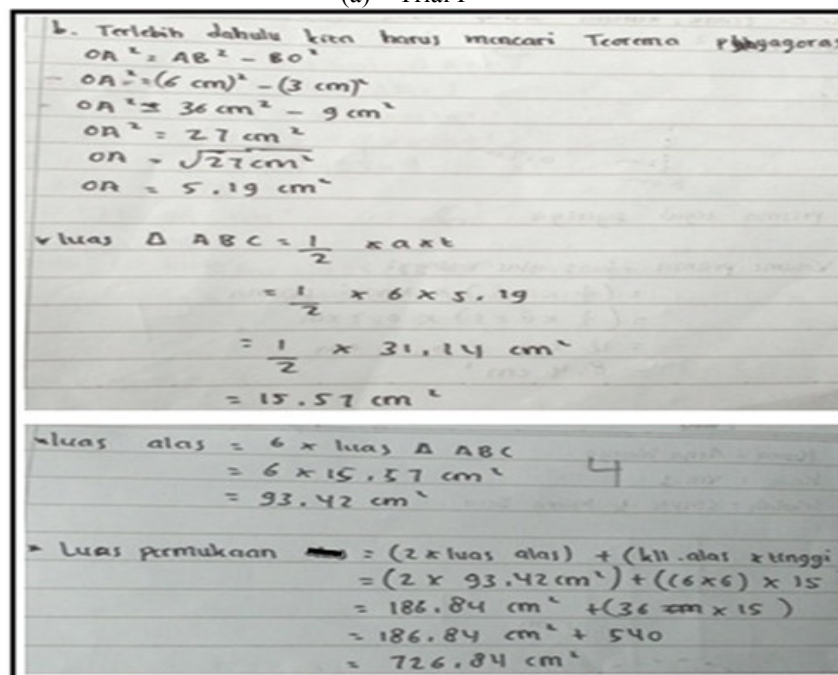 (a) Trial I
b. Terlebih dahulu kita harus mencari Teorema
OA² = AB² - BO²
- OA² = (6 cm)² - (3 cm)²
- OA² = 36 cm² - 9 cm²
OA² = 27 cm²
OA = √27 cm²
OA = 5.19 cm²
luas Δ ABC = 1/2 x a x t
= 1/2 x 6 x 5.19
= 1/2 x 31.14 cm²
= 15.57 cm²
luas alas = 6 x luas Δ ABC
= 6 x 15.57 cm² 4
= 93.42 cm²
Luas permukaan = (2 x luas alas) + (kll.alas x tinggi
= (2 x 93.42 cm²) + ((6x6) x 15
= 186.84 cm² + (36 x 15)
= 186.84 cm² + 540
= 726.84 cm²